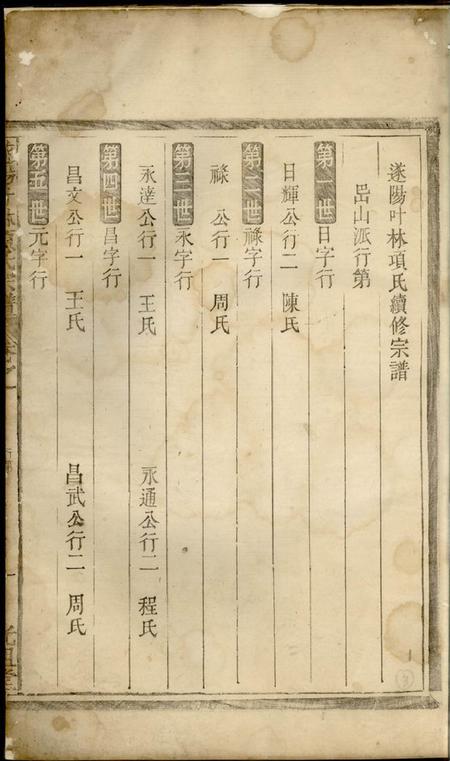 遂陽叶林項氏續修宗譜
嵒山派行第
第一世日字行
日輝公行二 陳氏
第二世祿字行
祿 公行一 周氏
第三世永字行
永達公行一 王氏 永通公行二 程氏
第四世昌字行
昌文公行一 王氏 昌武公行二 周氏
第五世元字行